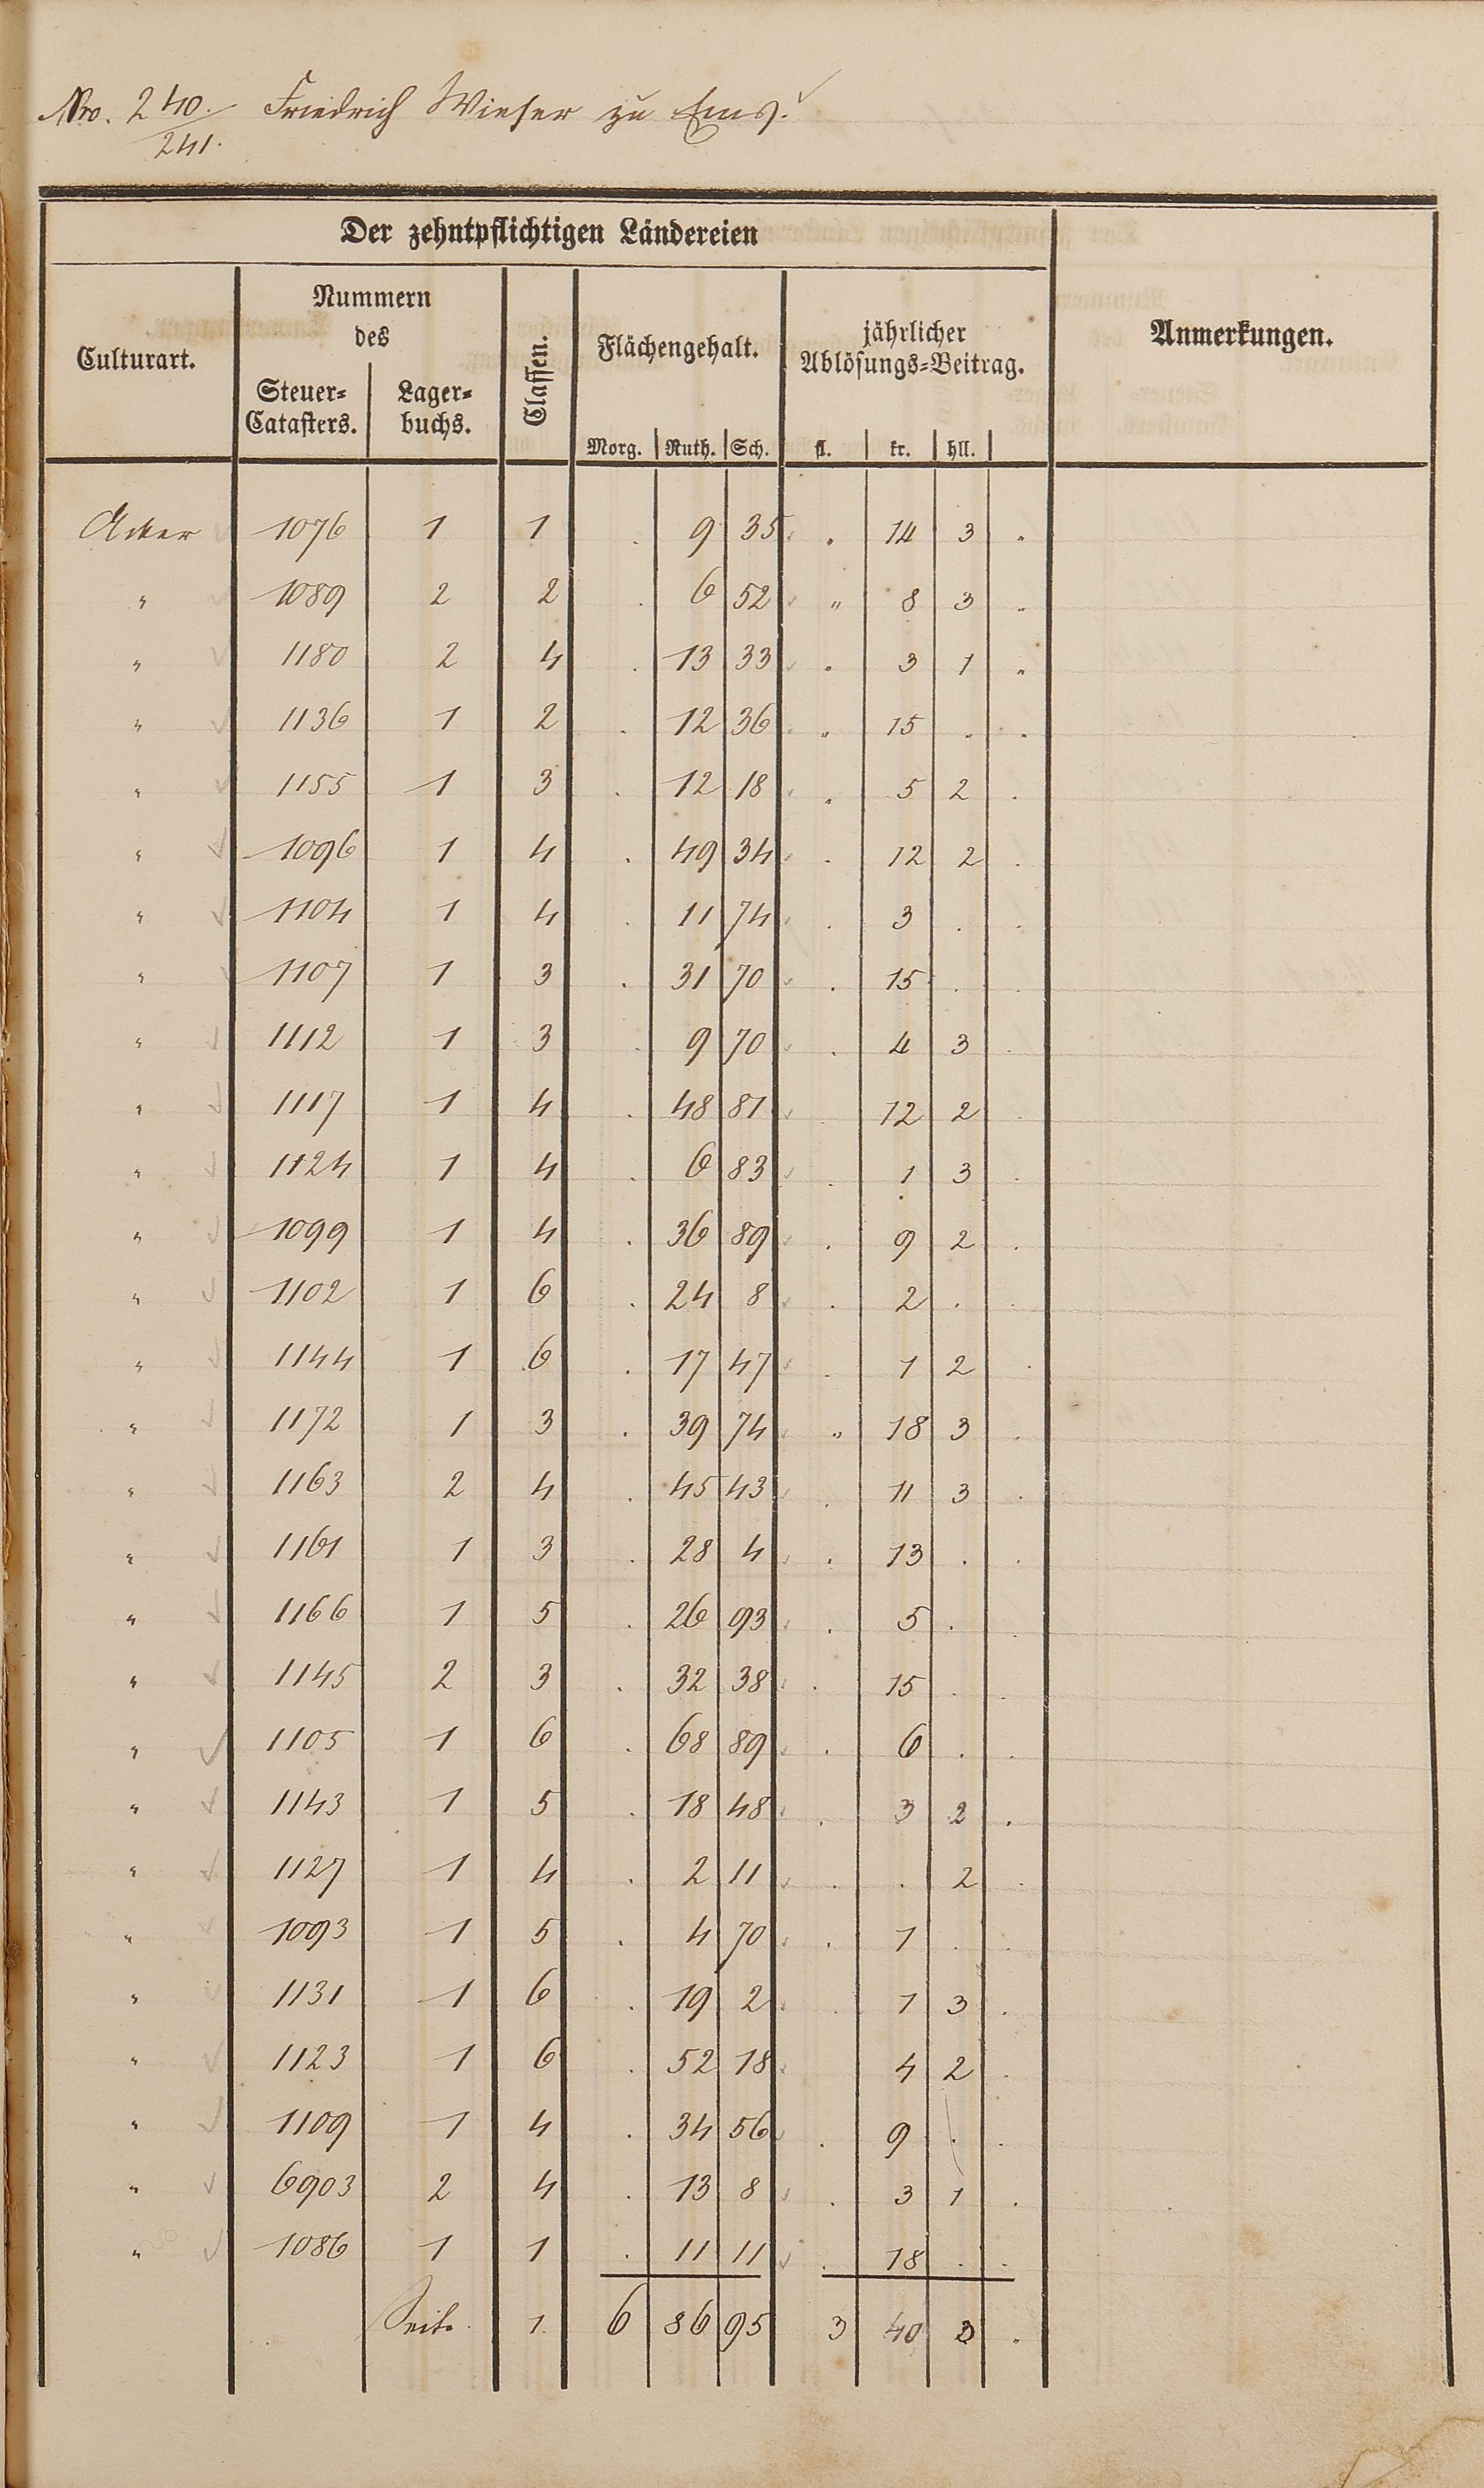 Nro. 240. Friedrich Wieser zu Ems.
241.
Der zehntpflichtigen Ländereien
Culturart. Nummern des Steuer-Catasters. Lager-buchs. Classen. Flächengehalt. jährlicher Ablösungs-Beitrag. Anmerkungen.
Morg. Ruth. Sch. fl. kr. hll.
Acker 1076 1 1 . 9 35 . 14 3 .
" 1089 2 2 . 6 52 " 8 3 .
" 1180 2 4 . 13 33 . 3 1 .
" 1136 1 2 . 12 36 . 15 . .
" 1155 1 3 . 12 18 . 5 2 .
" 1096 1 4 . 49 34 . 12 2 .
" 1104 1 4 . 11 74 . 3 . .
" 1107 1 3 . 31 70 . 15 . .
" 1112 1 3 . 9 70 . 4 3 .
" 1117 1 4 . 48 81 12 2 .
" 1124 1 4 . 6 83 . 1 3 .
" 1099 1 4 . 36 89 . 9 2 .
" 1102 1 6 . 24 8 . 2 . .
" 1144 1 6 . 17 47 . 1 2 .
" 1172 1 3 . 39 74 " 18 3 .
" 1163 2 4 . 45 43 . 11 3 .
" 1161 1 3 . 28 4 . 13 . .
" 1166 1 5 . 26 93 . 5 . .
" 1145 2 3 . 32 38 . 15 . .
" 1105 1 6 . 68 89 . 6 . .
" 1143 1 5 . 18 48 . 3 2 .
" 1127 1 4 . 2 11 . . 2 .
" 1093 1 5 . 4 70 . 1 . .
" 1131 1 6 . 19 2 . 1 3 .
" 1123 1 6 . 52 18 4 2 .
" 1109 1 4 . 34 56 . 9 . .
" 6903 2 4 . 13 8 . 3 1 .
" 1086 1 1 . 11 11 . 18 . .
Seite 1. 6 86 95 3 40 3 .